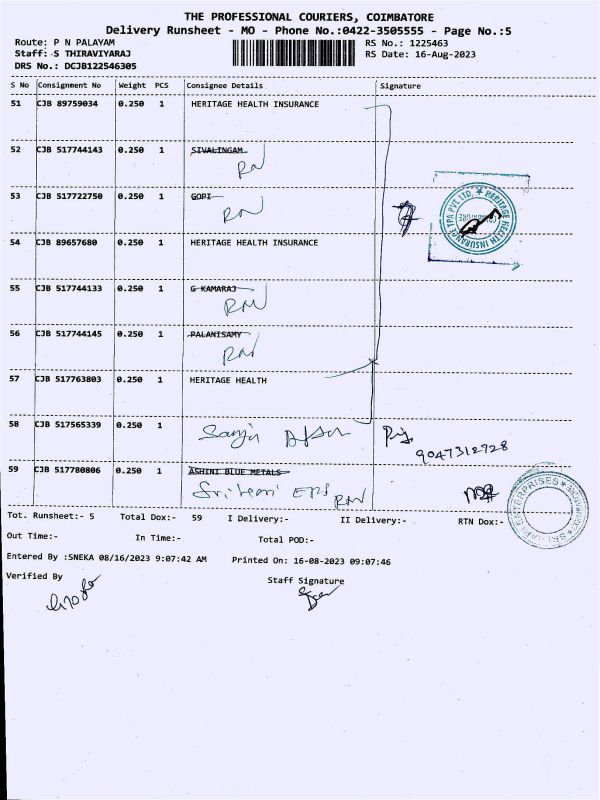 THE PROFESSIONAL COURIERS, COIMBATORE
Delivery Runsheet - MO - Phone No.:0422-3505555 - Page No.:5
Route: P N PALAYAM RS No.: 1225463
Staff: S THIRAVIYARAJ RS Date: 16-Aug-2023
DRS No.: DCJB122546305
S No Consignment No Weight PCS Consignee Details Signature
51 CJB 89759034 0.250 1 HERITAGE HEALTH INSURANCE
52 CJB 517744143 0.250 1 SIVALINGAM
RN
53 CJB 517722750 0.250 1 GOPI
RN
HERITAGE HEALTH INSURANCE TPA PVT. LTD.
54 CJB 89657680 0.250 1 HERITAGE HEALTH INSURANCE
55 CJB 517744133 0.250 1 G KAMARAJ
RN
56 CJB 517744145 0.250 1 PALANISAMY
RN
57 CJB 517763803 0.250 1 HERITAGE HEALTH
58 CJB 517565339 0.250 1
9047312728
59 CJB 517780806 0.250 1 ASHINI BLUE METALS
Sri Hari RN
ENTERPRISES
Tot. Runsheet:- 5 Total Dox:- 59 I Delivery:- II Delivery:- RTN Dox:-
Out Time:- In Time:- Total POD:-
Entered By :SNEKA 08/16/2023 9:07:42 AM Printed On: 16-08-2023 09:07:46
Verified By Staff Signature